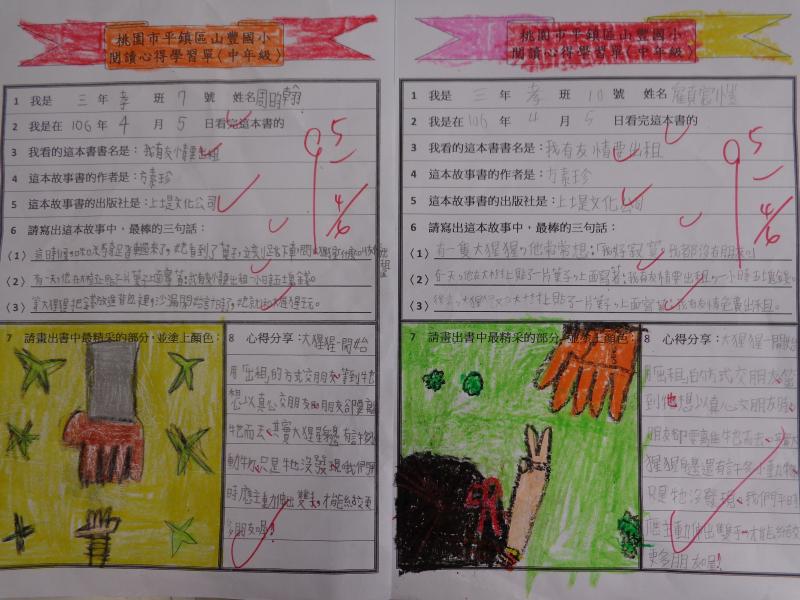 桃園市平鎮區山豐國小
閱讀心得學習單(中年級)
1 我是 三 年 孝 班 7 號 姓名
2 我是在 106 年 4 月 5 日看完這本書的
3 我看的這本書書名是：我有友情要出租
4 這本故事書的作者是：方素珍
5 這本故事書的出版社是：上堤文化公司
6 請寫出這故事中，最棒的三句話：
(1)
(2)
(3)
7 請畫出書中最精采的部分，並塗上顏色：
8 心得分享：大猩猩一開始
用「出租」的方式交朋友、等到牠
想以真心交朋友時朋友卻要離
牠而去、其實大猩猩旁邊有許多
動物、只是牠沒發現、我們平
時應主動伸出雙手、才能結交更
多朋友喔！
95
4/6
桃園市平鎮區山豐國小
閱讀心得學習單(中年級)
1 我是 三 年 孝 班 10 號 姓名
2 我是在 106 年 4 月 5 日看完這本書的
3 我看的這本書書名是：我有友情要出租
4 這本故事書的作者是：方素珍
5 這本故事書的出版社是：上堤文化公司
6 請寫出這故事中，最棒的三句話：
(1) 有一隻大猩猩，他常常想：「我好寂寞，我都沒有朋友」
(2) 有一天，他在大樹上貼了一片葉子，上面寫著：我有友情要出租，一小時五塊錢。
(3) 大樹上貼了一片葉子，上面寫著：我有友情免費出租。
7 請畫出書中最精采的部分，並塗上顏色：
8 心得分享：大猩猩一開始
用「出租」的方式交朋友、等
到他想以真心交朋友時、
朋友卻要離牠而去、其實大
猩猩身邊還有許多小動物、
只是牠沒發現、我們平時
應主動伸出雙手、才能結交
更多朋友喔！
95
4/6